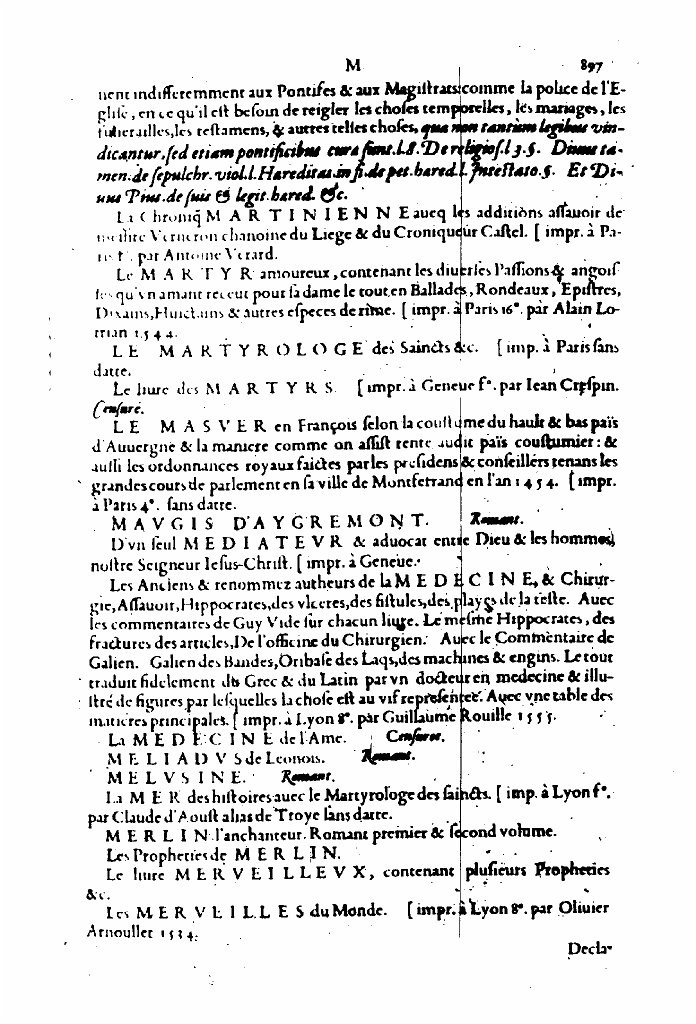 M 897
nent indifferemment aux Pontifes & aux Magiſtrats comme la police de l'E-
gliſe, en ce qu'il eſt beſoin de reigler les choſes temporelles, les mariages, les
funerailles, les teſtamens, & autres telles choſes, qua non tantùm legibus vin-
dicantur, ſed etiam pontificibus curæ ſunt. l. 8. De religioſ. l 3. §. Diuus ta-
men. de ſepulchr. viol. l. Hareditas. in fi. de pet. hared. l. Inteſtato. §. Et Di-
uus Pius. de ſuis & legit. hared. &c.
La Chroniq̃ MARTINIENNE aueq les additiõns aſſauoir de
meſſire Verneron chanoine du Liege & du Croniqueur Caſtel. [ impr. à Pa-
ris f°. par Antoine Verard.
Le MARTYR amoureux, contenant les diuerſes Paſſions & angoiſ
ſes qu'vn amant reçeut pour ſa dame le tout en Ballades, Rondeaux, Epiſtres,
Dixains, Huictains & autres eſpeces de ritme. [ impr. à Paris 16°. par Alain Lo-
trian 1544.
LE MARTYROLOGE des Saincts &c. [imp. à Paris ſans
datte.
Le liure des MARTYRS. [impr. à Geneue f°. par Iean Creſpin.
Cenſuré.
LE MASVER en François ſelon la couſtume du hault & bas païs
d'Auuergne & la maniere comme on aſſiſt rente audit païs couſtumier: &
auſſi les ordonnances royaux faictes par les preſidens & conſeillers tenans les
grandes cours de parlement en ſa ville de Montferrand en l'an 1454. [impr.
à Paris 4°. ſans datte.
MAVGIS D'AYGREMONT. Romant.
D'vn ſeul MEDIATEVR & aduocat entre Dieu & les hommes,
noſtre Seigneur Ieſus-Chriſt. [impr. à Geneue.
Les Anciens & renommez autheurs de la MEDECINE, & Chirur-
gie, Aſſauoir, Hippocrates, des vlceres, des fiſtules, des playes de la teſte. Auec
les commentaires de Guy Vide ſur chacun liure. Le meſme Hippocrates, des
fractures des articles, De l'officine du Chirurgien. Auec le Commentaire de
Galien. Galien des Bandes, Oribaſe des Laqs, des machines & engins. Le tout
traduit fidelement du Grec & du Latin par vn docteur en medecine & illu-
ſtré de figures par leſquelles la choſe eſt au vif repreſentée. Auec vne table des
matieres principales. [ impr. à Lyon 8°. par Guillaume Rouille 1555.
La MEDECINE de l'Ame. Cenſuree.
MELIADVS de Leonois. Romant.
MELVSINE. Romant.
La MER des hiſtoires auec le Martyrologe des ſaincts. [ imp. à Lyon f°.
par Claude d'Aouſt alias de Troye ſans datte.
MERLIN l'anchanteur. Romant premier & ſecond volume.
Les Propheties de MERLIN.
Le liure MERVEILLEVX, contenant pluſieurs Propheties
&c.
Les MERVEILLES du Monde. [impr. à Lyon 8°. par Oliuier
Arnoullet 1534.
Decla-